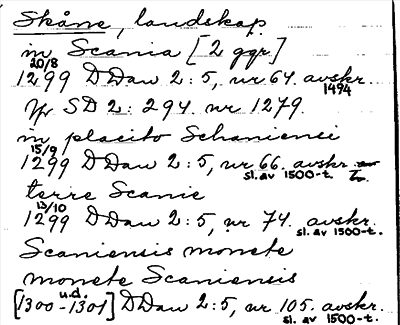 Skåne, landskap
in Scania [2 ggr.]
20/8
1299 DDan 2:5, nr 64. avskr.
1494
Jfr SD 2: 294. nr 1279.
in placito Schaniensi
15/9
1299 DDan 2:5, nr 66. avskr.
sl. av 1500-t.
terre Scanie
13/10
1299 DDan 2:5, nr 74. avskr.
sl. av 1500-t.
Scaniensis monete
monete Scaniensis
u.d.
[1300-1301] DDan 2:5, nr 105. avskr.
sl. av 1500-t.